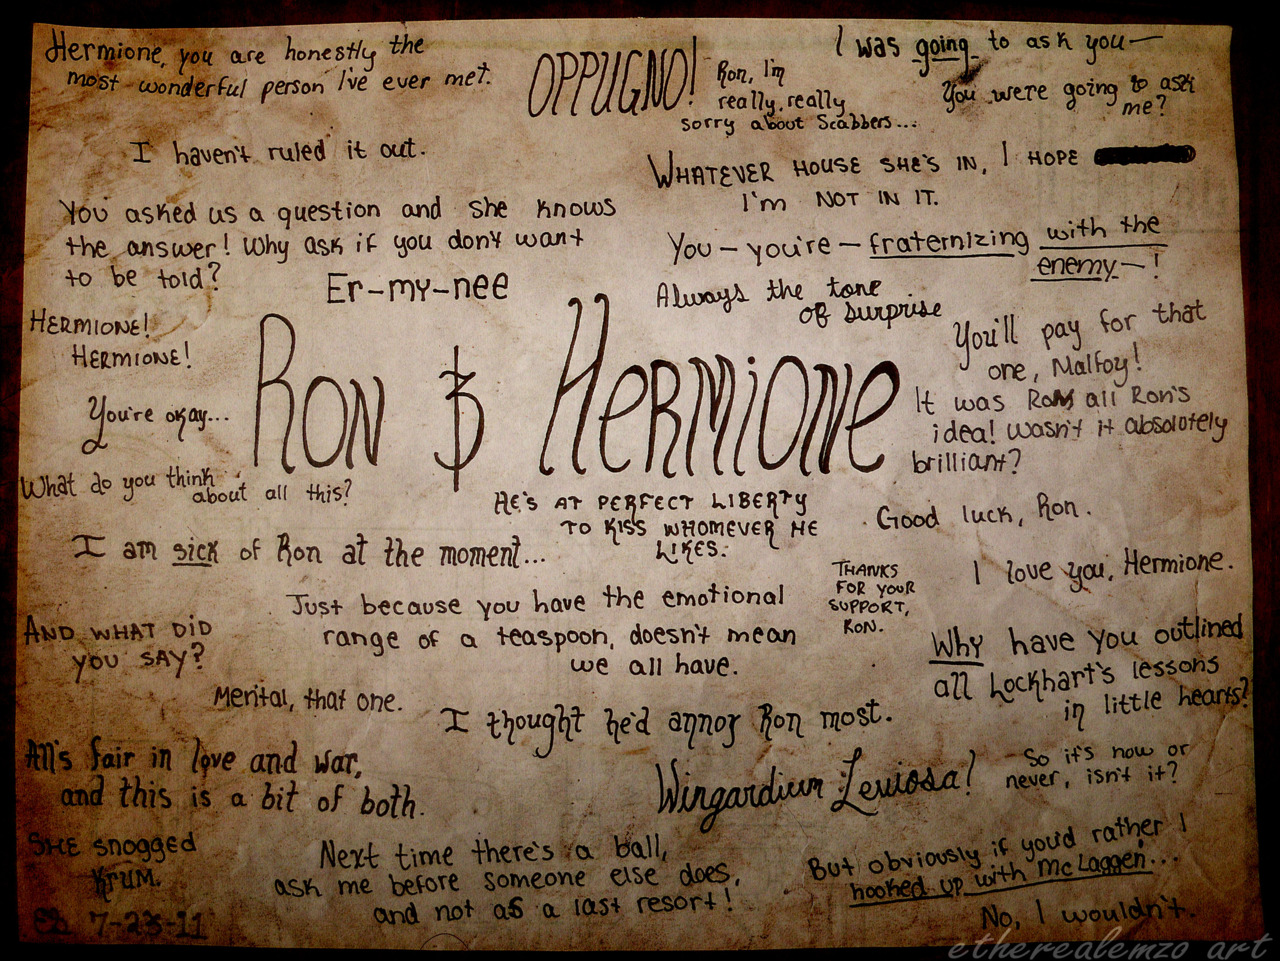 Hermione, you are honestly the
most wonderful person I've ever met.
OPPUGNO!
Ron, I'm
really, really
sorry about Scabbers...
I was going to ask you—
You were going to ask
me?
I haven't ruled it out.
WHATEVER HOUSE SHE'S IN, I HOPE
I'm NOT IN IT.
You asked us a question and she knows
the answer! Why ask if you don't want
to be told?
You – you're – fraternizing with the
enemy–!
Er-my-nee
Always the tone
of surprise
HERMIONE!
HERMIONE!
You'll pay for that
one, Malfoy!
RON & HERMIONE
You're okay...
It was all Ron's
idea! Wasn't it absolutely
brilliant?
What do you think
about all this?
HE'S AT PERFECT LIBERTY
TO KISS WHOMEVER HE
LIKES.
Good luck, Ron.
I am sick of Ron at the moment...
THANKS
FOR YOUR
SUPPORT,
RON.
I love you, Hermione.
Just because you have the emotional
range of a teaspoon, doesn't mean
we all have.
AND WHAT DID
YOU SAY?
Why have you outlined
all Lockhart's lessons
in little hearts?
Mental, that one.
I thought he'd annoy Ron most.
All's fair in love and war,
and this is a bit of both.
Wingardium Leviosa!
So it's now or
never, isn't it?
SHE snogged
KRUM.
Next time there's a ball,
ask me before someone else does,
and not as a last resort!
But obviously if you'd rather I
hooked up with McLaggen...
No, I wouldn't.
7-23-11
etherealemzo art